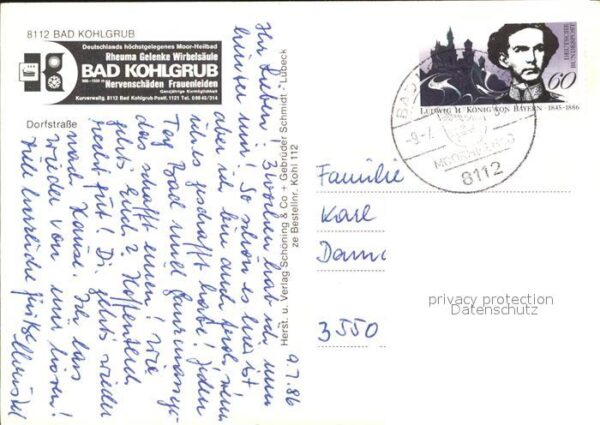 8112 BAD KOHLGRUB
Deutschlands höchstgelegenes Moor-Heilbad
Rheuma Gelenke Wirbelsäule
BAD KOHLGRUB
Nervenschäden Frauenleiden
Ganzjährige Kurmöglichkeit
Kurverwaltg. 8112 Bad Kohlgrub Postf. 1121 Tel. 08845/314
Dorfstraße
Ihr Lieben! 3 Wochen hab ich nun
hinter mir! So schön es hier ist
aber ich bin auch froh, wenn
ich es geschafft habe! Jeden
Tag Bad und Ganzmassage
das schafft einen! Wie
gehts Euch? Hoffentlich
recht gut! Di. gehts wieder
nach Hause. Ich lass
wieder von mir hören!
Viele herzliche Grüße
9.7.86
Herst. u. Verlag Schöning & Co + Gebrüder Schmidt - Lübeck
ze Bestellnr. Kohl 112
DEUTSCHE
BUNDESPOST
60
LUDWIG II. KÖNIG VON BAYERN · 1845-1886
BAD
-9.-7.
8112
Familie
Karl
3550
privacy protection
Datenschutz